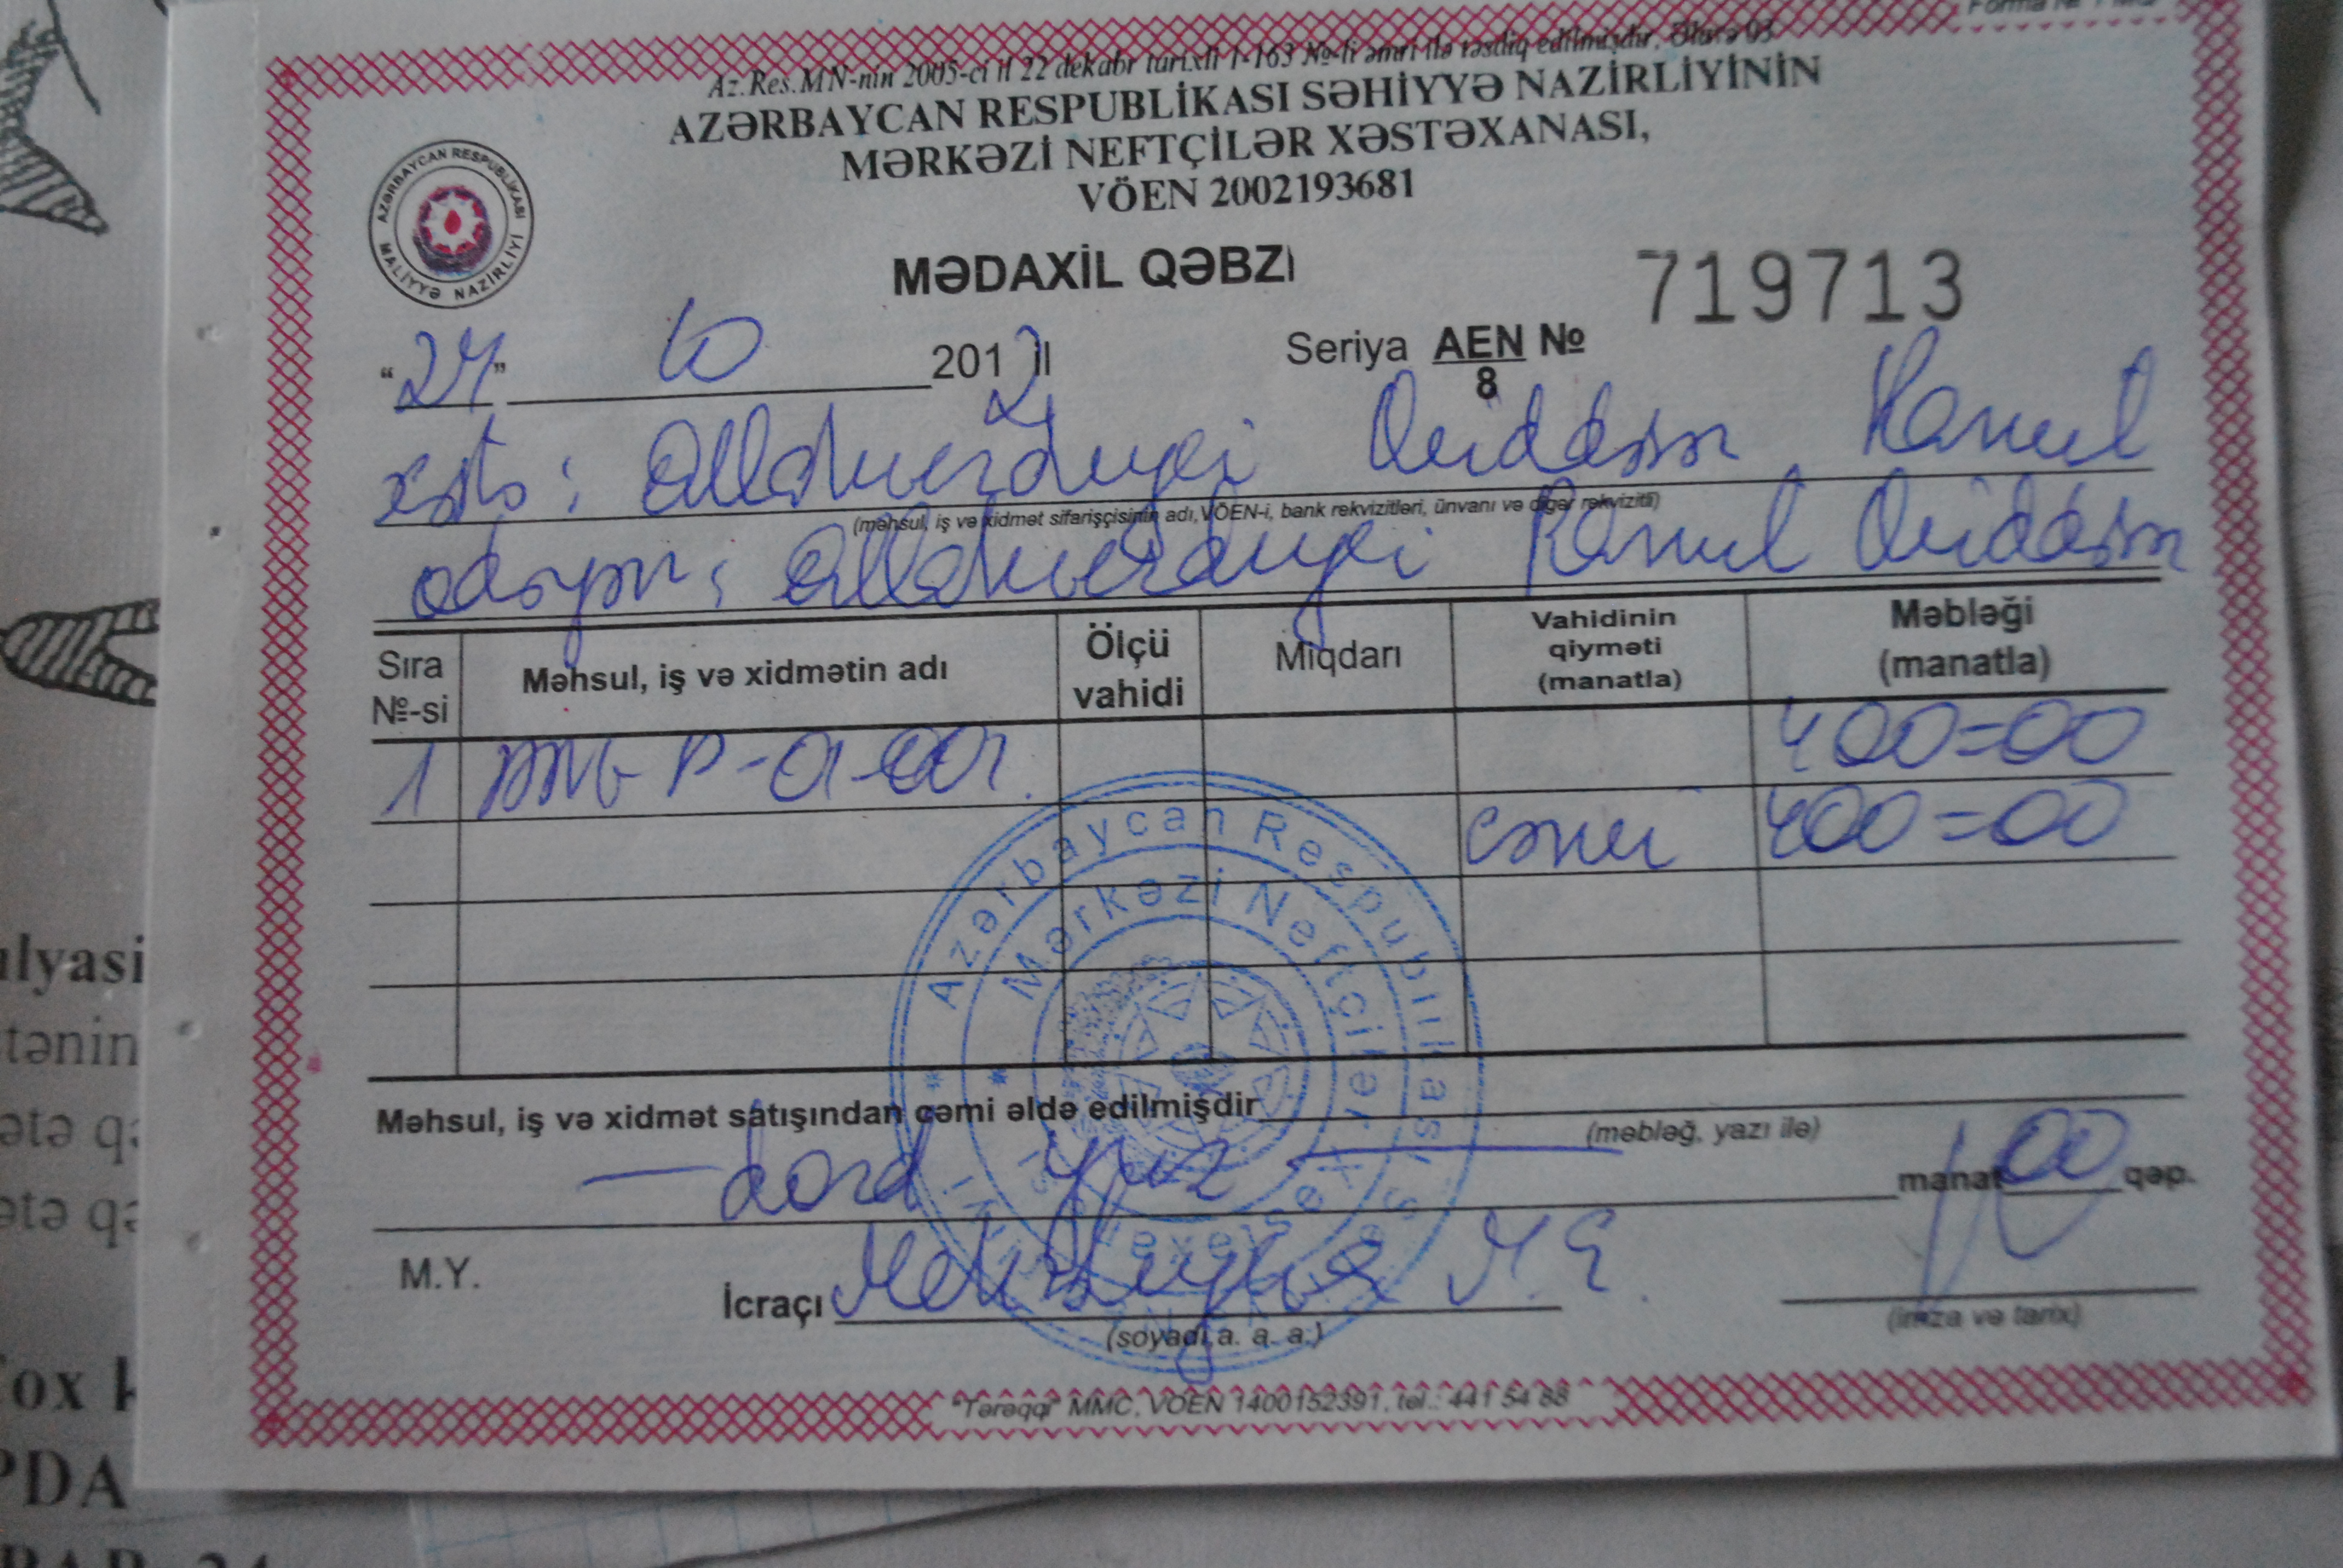 Az.Res.MN-nin 2005-ci il 22 dekabr tarixli 1-163 №-li əmri ilə təsdiq edilmişdir. Əlavə 03
AZƏRBAYCAN RESPUBLİKASI SƏHİYYƏ NAZİRLİYİNİN
MƏRKƏZİ NEFTÇİLƏR XƏSTƏXANASI,
VÖEN 2002193681
AZƏRBAYCAN RESPUBLİKASI
MALİYYƏ NAZİRLİYİ
MƏDAXİL QƏBZİ
719713
"24" 10 2012 il
Seriya AEN/8 №
xəstə: Allahverdiyev Ramil
(məhsul, iş və xidmət sifarişçisinin adı, VÖEN-i, bank rekvizitləri, ünvanı və digər rekvizitli)
ödəyən: Allahverdiyev Ramil
Sıra №-si
Məhsul, iş və xidmətin adı
Ölçü vahidi
Miqdarı
Vahidinin qiyməti (manatla)
Məbləği (manatla)
1 400=00
cəmi 400=00
Azərbaycan Respublikası
Mərkəzi Neftçilər Xəstəxanası
Məhsul, iş və xidmət satışından cəmi əldə edilmişdir
(məbləğ, yazı ilə)
— dörd yüz — manat 00 qəp.
M.Y.
İcraçı
(soyadı, a. a. a.)
(imza və tarix)
"Tərəqqi" MMC, VÖEN 1400152391, tel.: 441 54 88
ilyasi
tənin
PDA